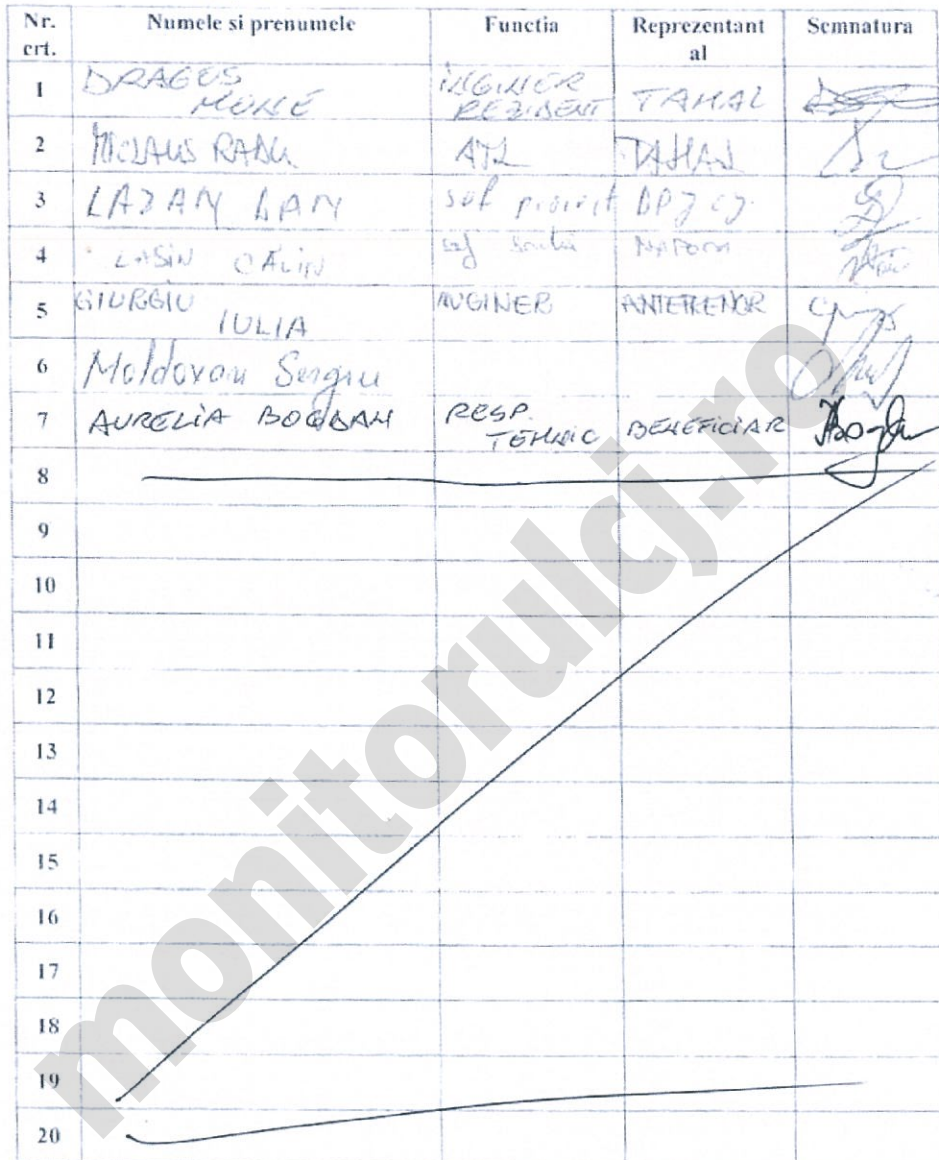 Nr. crt. Numele si prenumele Functia Reprezentant al Semnatura
1 DRAGOS INGINER REZIDENT TAHAL
2 RADU TAHAL
3 LAZAR DAN sef DPJ CJ.
4 CĂLIN sef
5 GIURGIU IULIA INGINER ANTEPRENOR
6 Moldovan Sergiu
7 AURELIA BOGDAN RESP. TEHNIC BENEFICIAR
8
9
10
11
12
13
14
15
16
17
18
19
20
monitorulcj.ro